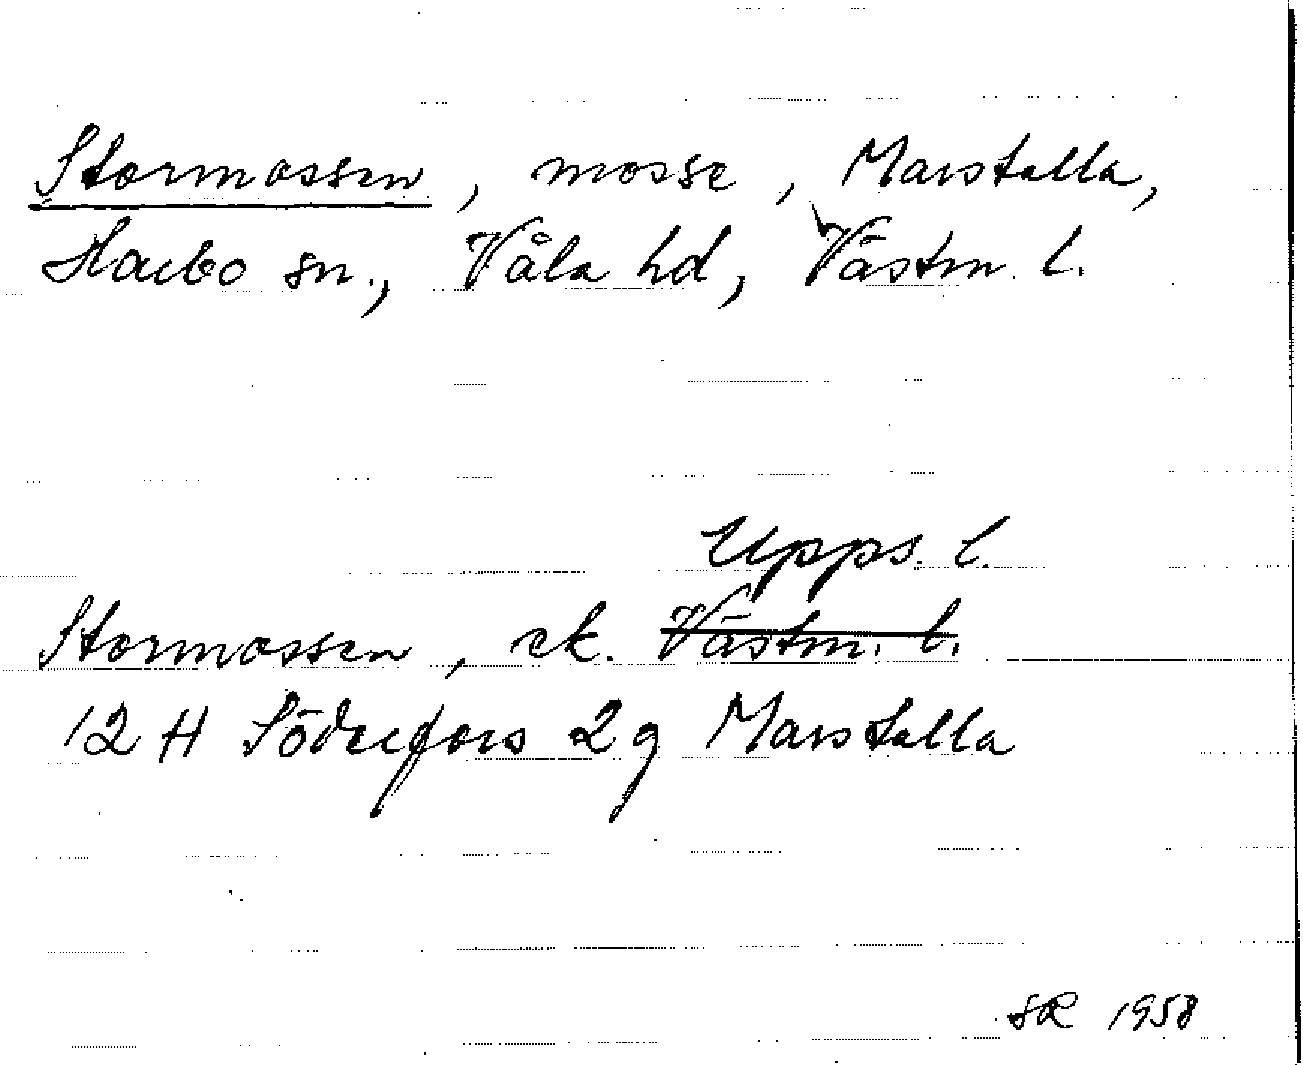 Stormossen, mosse, Marstalla,
Harbo sn., Våla hd, Västm. l.
Upps. l.
Stormossen, ek. Västm. l.
12 H Söderfors 2 g Marstalla
SR 1958